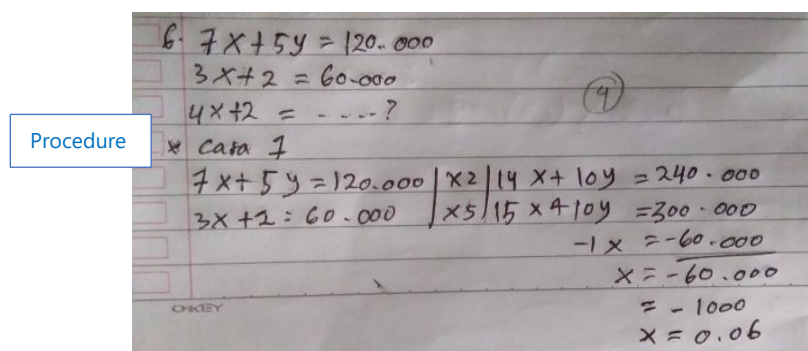 6. 7x+5y=120.000
3x+2 = 60.000
4x+2 = ....?
(4)
Procedure
* cara 1
7x+5y=120.000 | x2 | 14 x+10y =240.000
3x+2=60.000 | x5 | 15 x+10y =300.000
-1x =-60.000
x=-60.000
= -1000
x=0.06
OKEY